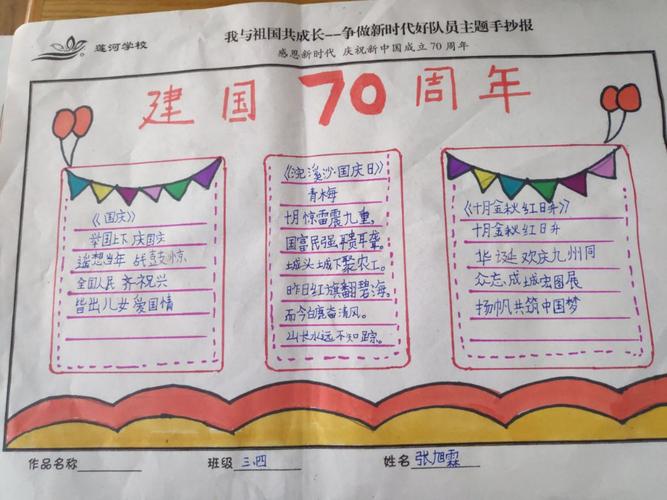 莲河学校
我与祖国共成长--争做新时代好队员主题手抄报
感恩新时代 庆祝新中国成立70周年
建国70周年
《国庆》
举国上下庆国庆
遥想当年 战鼓惊
全国人民 齐祝兴
皆出儿女爱国情
《浣溪沙·国庆日》
青梅
十月惊雷震九重。
国富民强聩耳聋。
城头城下聚农工。
昨日红旗翻碧海。
而今白鹿奋清风。
山长水远不知踪。
《十月金秋红日升》
十月金秋红日升
华诞欢庆九州同
众志成城宏图展
扬帆共筑中国梦
作品名称
班级 三.四
姓名 张旭霖